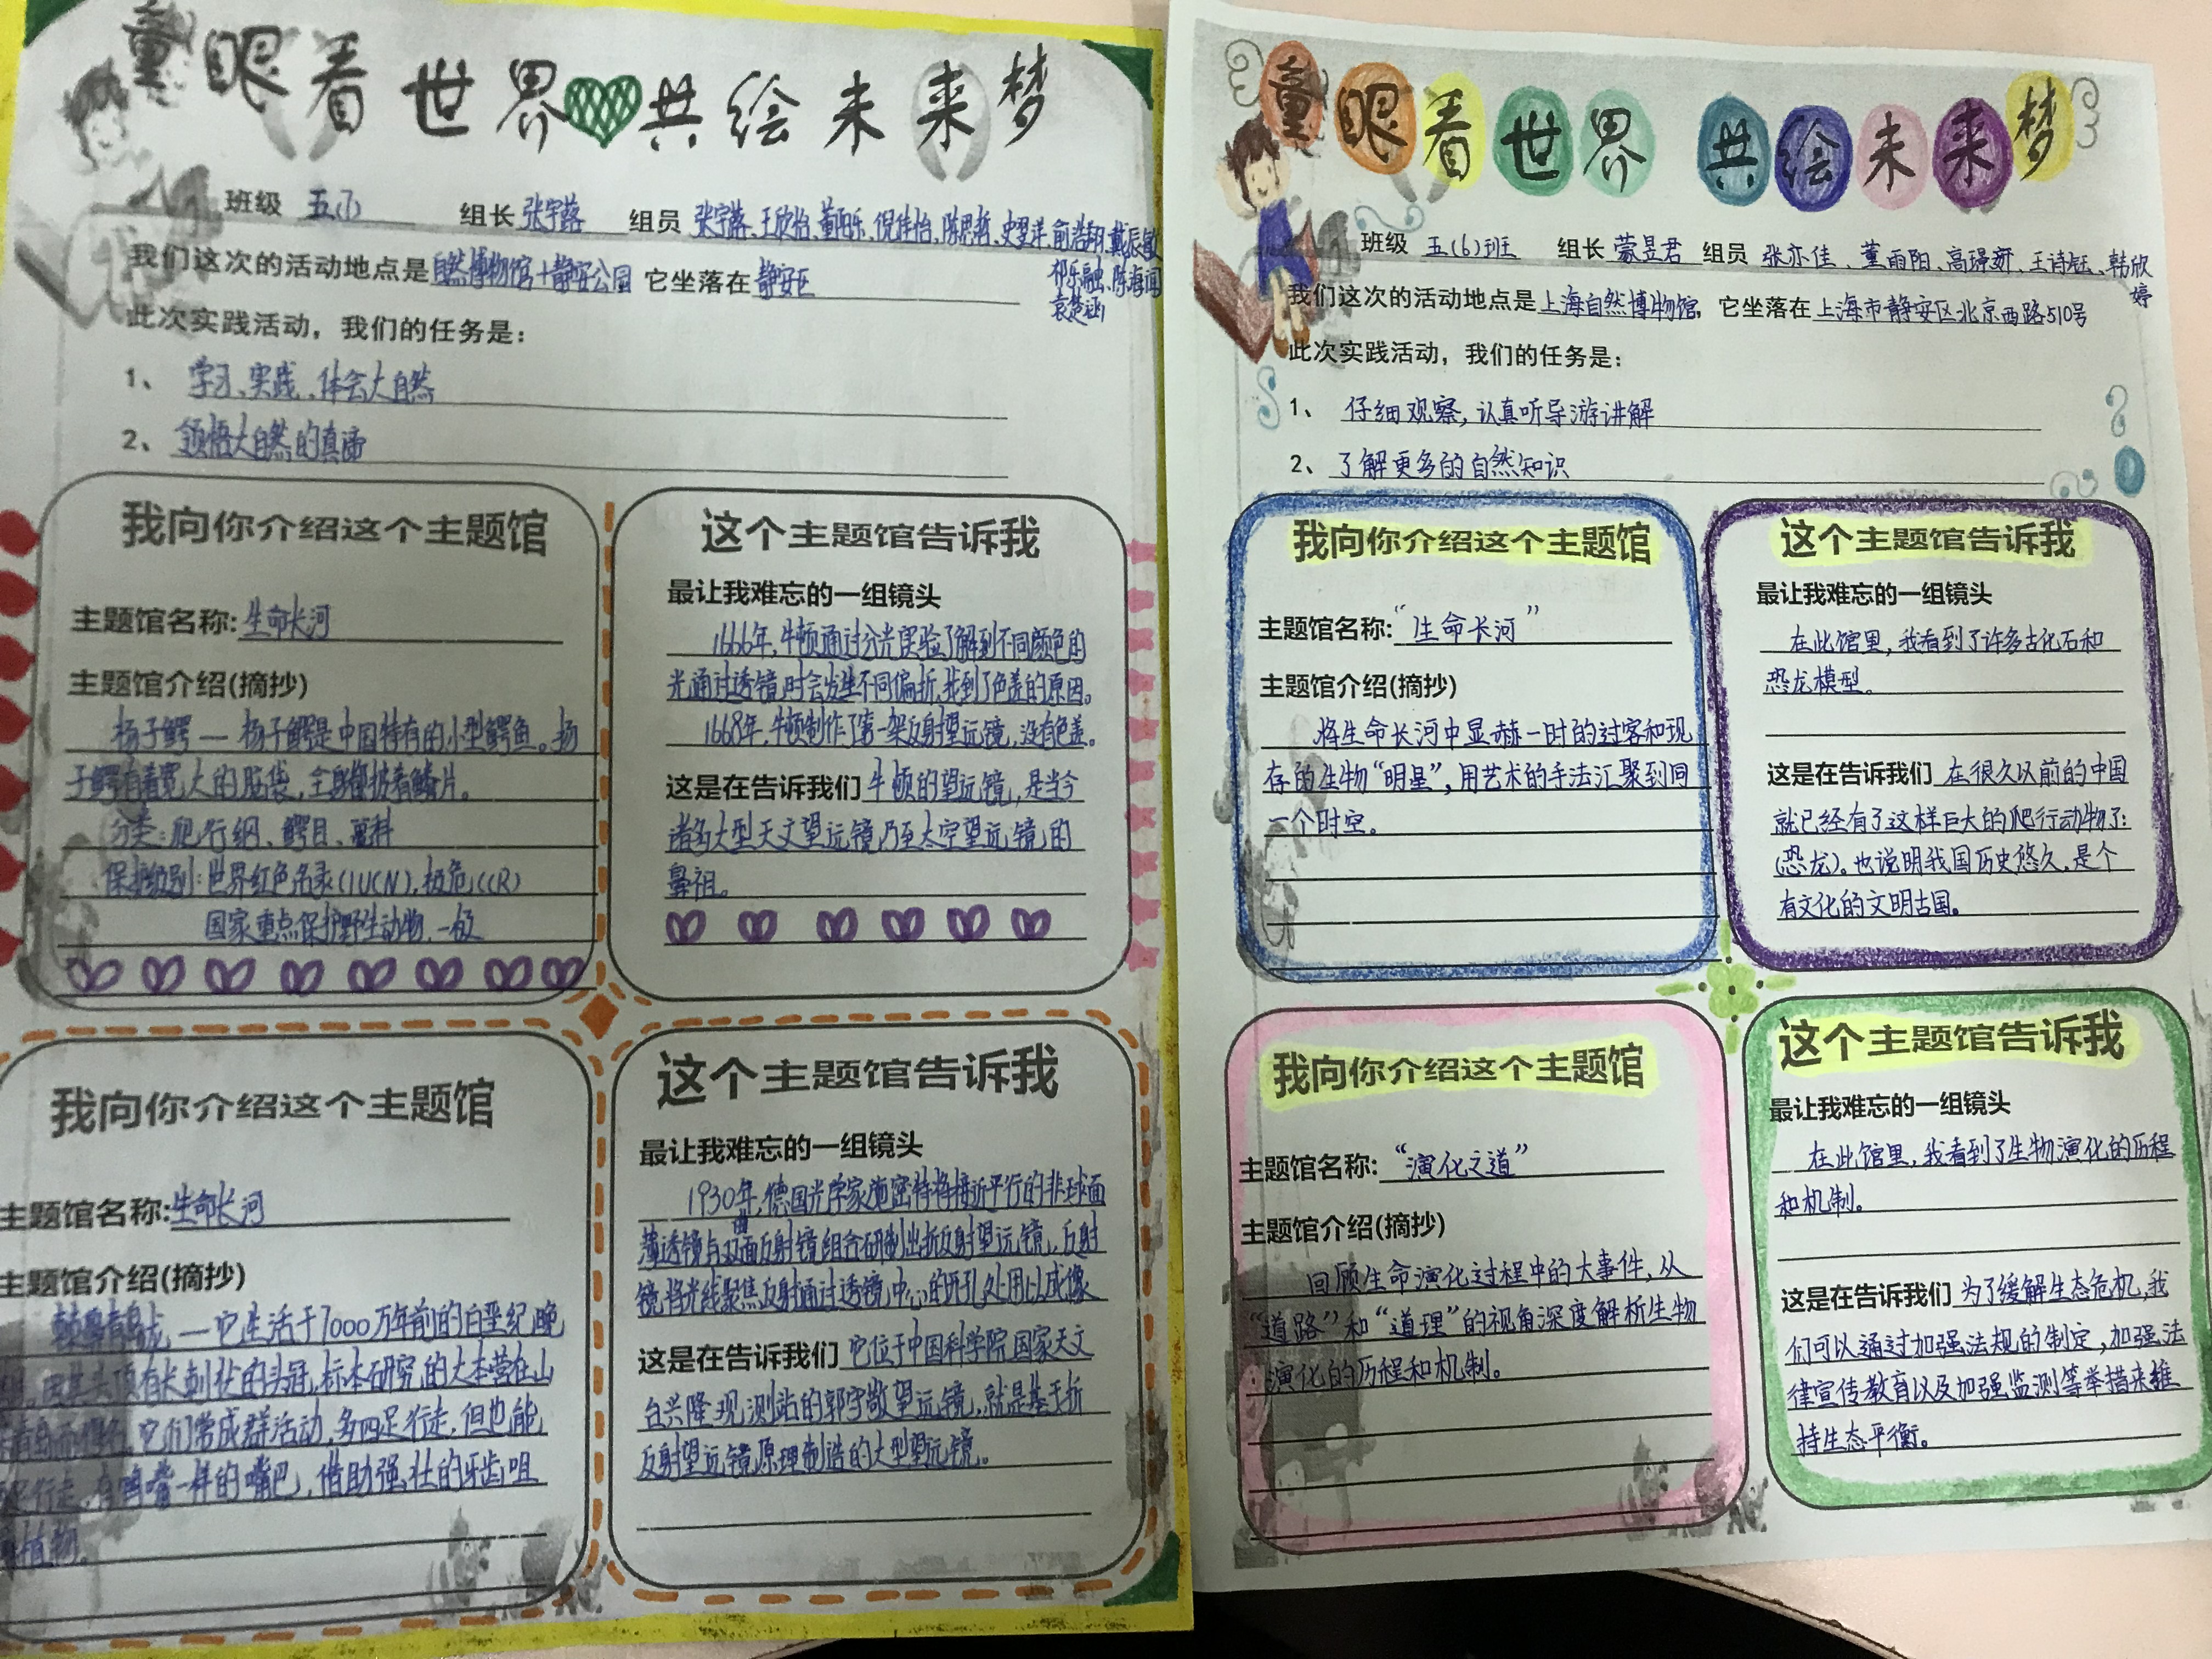 童眼看世界 共绘未来梦
班级 五(1) 组长 张宇蕗 组员 张宇蕗、王欣怡、董珀乐、倪佳怡、陈思哲、史翌洋、俞浩翔、戴辰敏
祁乐融、陈海闻
袁楚涵
我们这次的活动地点是自然博物馆+静安公园 它坐落在静安区
此次实践活动，我们的任务是：
1、 学习、实践、体会大自然
2、 领悟大自然的真谛
我向你介绍这个主题馆
主题馆名称:生命长河
主题馆介绍(摘抄)
扬子鳄 — 扬子鳄是中国特有的小型鳄鱼。扬
子鳄有着宽大的脑袋，全身披着鳞片。
分类：爬行纲、鳄目、鼍科
保护级别：世界红色名录(IUCN)，极危(CR)
国家重点保护野生动物，一级
这个主题馆告诉我
最让我难忘的一组镜头
1666年，牛顿通过分光实验了解到不同颜色的
光通过透镜时会发生不同偏折，找到了色差的原因。
1668年，牛顿制作了第一架反射望远镜，没有色差。
这是在告诉我们 牛顿的望远镜，是当今
诸多大型天文望远镜乃至太空望远镜的
鼻祖。
我向你介绍这个主题馆
主题馆名称:生命长河
主题馆介绍(摘抄)
棘鼻青岛龙 — 它生活于7000万年前的白垩纪晚
，因其头顶有长刺状的头冠，标本研究的大本营在山
青岛而得名。它们常成群活动，多四足行走，但也能
足行走，有鸭嘴一样的嘴巴，借助强壮的牙齿咀
植物。
这个主题馆告诉我
最让我难忘的一组镜头
1930年，德国光学家施密特将接近平行的非球面
薄透镜与球面反射镜组合研制出折反射望远镜，反射
镜将光线聚焦反射通过透镜中心的环孔处用以成像
这是在告诉我们 它位于中国科学院国家天文
台兴隆观测站的郭守敬望远镜，就是基于折
反射望远镜原理制造的大型望远镜。
童眼看世界 共绘未来梦
班级 五(6)班 组长 蒙昱君 组员 张亦佳、董雨阳、高璟妍、王诗钰、韩欣
婷
我们这次的活动地点是上海自然博物馆，它坐落在上海市静安区北京西路510号
此次实践活动，我们的任务是：
1、 仔细观察，认真听导游讲解
2、 了解更多的自然知识
我向你介绍这个主题馆
主题馆名称:“生命长河”
主题馆介绍(摘抄)
将生命长河中显赫一时的过客和现
存的生物“明星”，用艺术的手法汇聚到同
一个时空。
这个主题馆告诉我
最让我难忘的一组镜头
在此馆里，我看到了许多古化石和
恐龙模型。
这是在告诉我们 在很久以前的中国
就已经有了这样巨大的爬行动物了：
(恐龙)。也说明我国历史悠久，是个
有文化的文明古国。
我向你介绍这个主题馆
主题馆名称:“演化之道”
主题馆介绍(摘抄)
回顾生命演化过程中的大事件，从
“道路”和“道理”的视角深度解析生物
演化的历程和机制。
这个主题馆告诉我
最让我难忘的一组镜头
在此馆里，我看到了生物演化的历程
和机制。
这是在告诉我们 为了缓解生态危机，我
们可以通过加强法规的制定，加强法
律宣传教育以及加强监测等举措来维
持生态平衡。